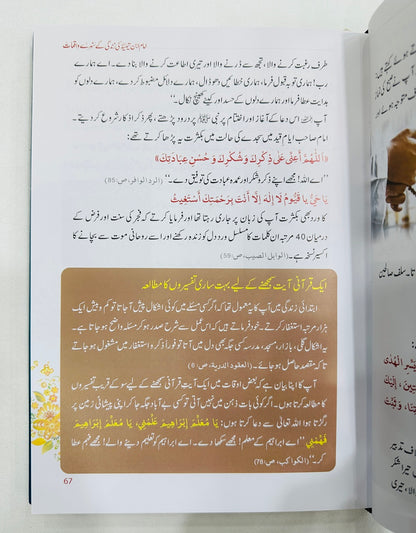 امام ابن تیمیہ کی زندگی کے سنہرے واقعات
طرف رغبت کرنے والا، تجھ سے ڈرنے والا اور تیری اطاعت کرنے والا بنا دے۔ اے ہمارے
رب! میری توبہ قبول فرما، میری خطائیں دھو ڈال، ہمارے دلائل مضبوط کر دے، ہمارے دلوں کو
ہدایت عطا فرما اور ہمارے دلوں کے حسد اور کینے کھینچ نکال۔"
آپ اس دعا کے آغاز اور اختتام پر نبی ﷺ پر درود پڑھتے، پھر ذکر اذکار شروع کر دیتے۔
امام صاحب ایام قید میں سجدے کی حالت میں بکثرت یہ پڑھا کرتے تھے:
«اَللّٰهُمَّ أَعِنِّي عَلَىٰ ذِكْرِكَ وَ شُكْرِكَ وَ حُسْنِ عِبَادَتِكَ»
"اے اللہ! مجھے اپنے ذکر و شکر اور عمدہ عبادت کی توفیق دے۔" (الرد الوافر، ص:69)
يَا حَيُّ يَا قَيُّومُ لَا إِلٰهَ إِلَّا أَنْتَ بِرَحْمَتِكَ أَسْتَغِيثُ
کا ورد بھی بکثرت آپ کی زبان پر جاری رہتا تھا اور فرمایا کرتے تھے کہ فجر کی سنت اور فرض کے
درمیان 40 مرتبہ ان کلمات کا مسلسل ورد دل کو زندہ رکھنے اور اسے روحانی موت سے بچانے کا
اکسیر نسخہ ہے۔ (الوابل الصیب، ص:59)
ایک قرآنی آیت سمجھنے کے لیے بہت ساری تفسیروں کا مطالعہ
ابتدائی زندگی میں آپ کا یہ معمول تھا کہ اگر کسی مسئلے میں کوئی اشکال پیش آ جاتا تو کم و بیش ایک
ہزار مرتبہ استغفار کرتے۔ خود فرماتے ہیں کہ اس عمل سے شرح صدر ہو کر مسئلہ واضح ہو جاتا ہے۔
یہ اشکال گلی، بازار، مسجد، مدرسہ کسی جگہ بھی دل میں آتا تو فوراً ذکر و استغفار میں مشغول ہو جاتا
تاآنکہ مقصد حاصل ہو جائے۔ (العقود الدریۃ، ص:6)
آپ کا اپنا بیان ہے کہ بعض اوقات میں ایک آیت قرآنی سمجھنے کے لیے سو کے قریب تفسیروں
کا مطالعہ کرتا ہوں۔ اگر کوئی بات ذہن میں نہیں آتی تو کسی بے آباد جگہ جا کر اپنی پیشانی زمین پر
رگڑتا ہوا اللہ تعالیٰ سے دعا کرتا ہوں: يَا مُعَلِّمَ إِبْرَاهِيمَ عَلِّمْنِي، يَا مُعَلِّمَ إِبْرَاهِيمَ
فَهِّمْنِي "اے ابراہیم کے معلم! مجھے سکھا دے۔ اے ابراہیم کو تعلیم دینے والے! مجھے فہم عطا
کر۔" (الکواکب، ص:78)
67